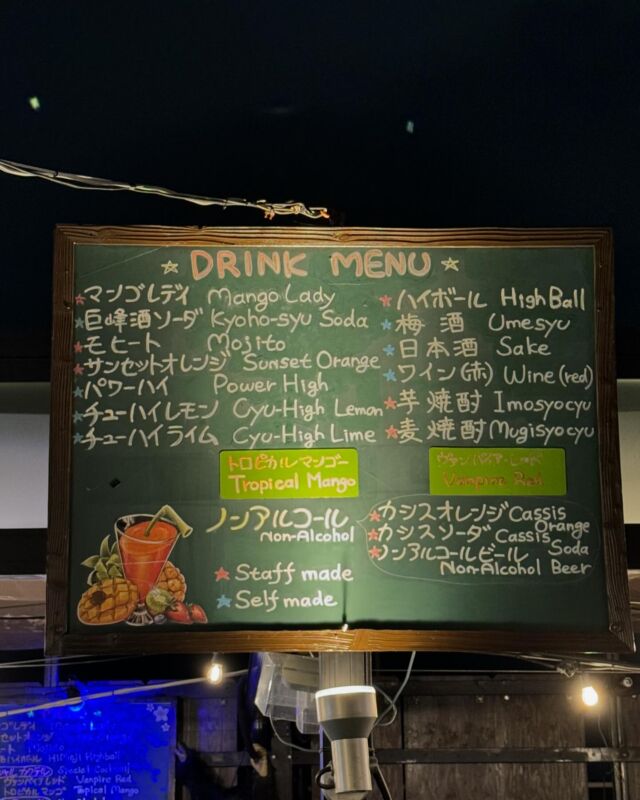 ☆DRINK MENU☆
★マンゴレディ Mango Lady
★巨峰酒ソーダ Kyoho-syu Soda
★モヒート Mojito
★サンセットオレンジ Sunset Orange
★パワーハイ Power High
★チューハイレモン Cyu-High Lemon
★チューハイライム Cyu-High Lime
★ハイボール High Ball
★梅酒 Umesyu
★日本酒 Sake
★ワイン(赤) Wine (red)
★芋焼酎 Imosyocyu
★麦焼酎 Mugisyocyu
トロピカルマンゴー
Tropical Mango
ヴァンパイアーレッド
Vampire Red
ノンアルコール
Non-Alcohol
★カシスオレンジ Cassis
Orange
★カシスソーダ Cassis
Soda
★ノンアルコールビール
Non-Alcohol Beer
★Staff made
★Self made
Himeji Highball
Special Cocktail
ヴァンパイアレッド Vampire Red
トロピカルマンゴ Tropical Mango